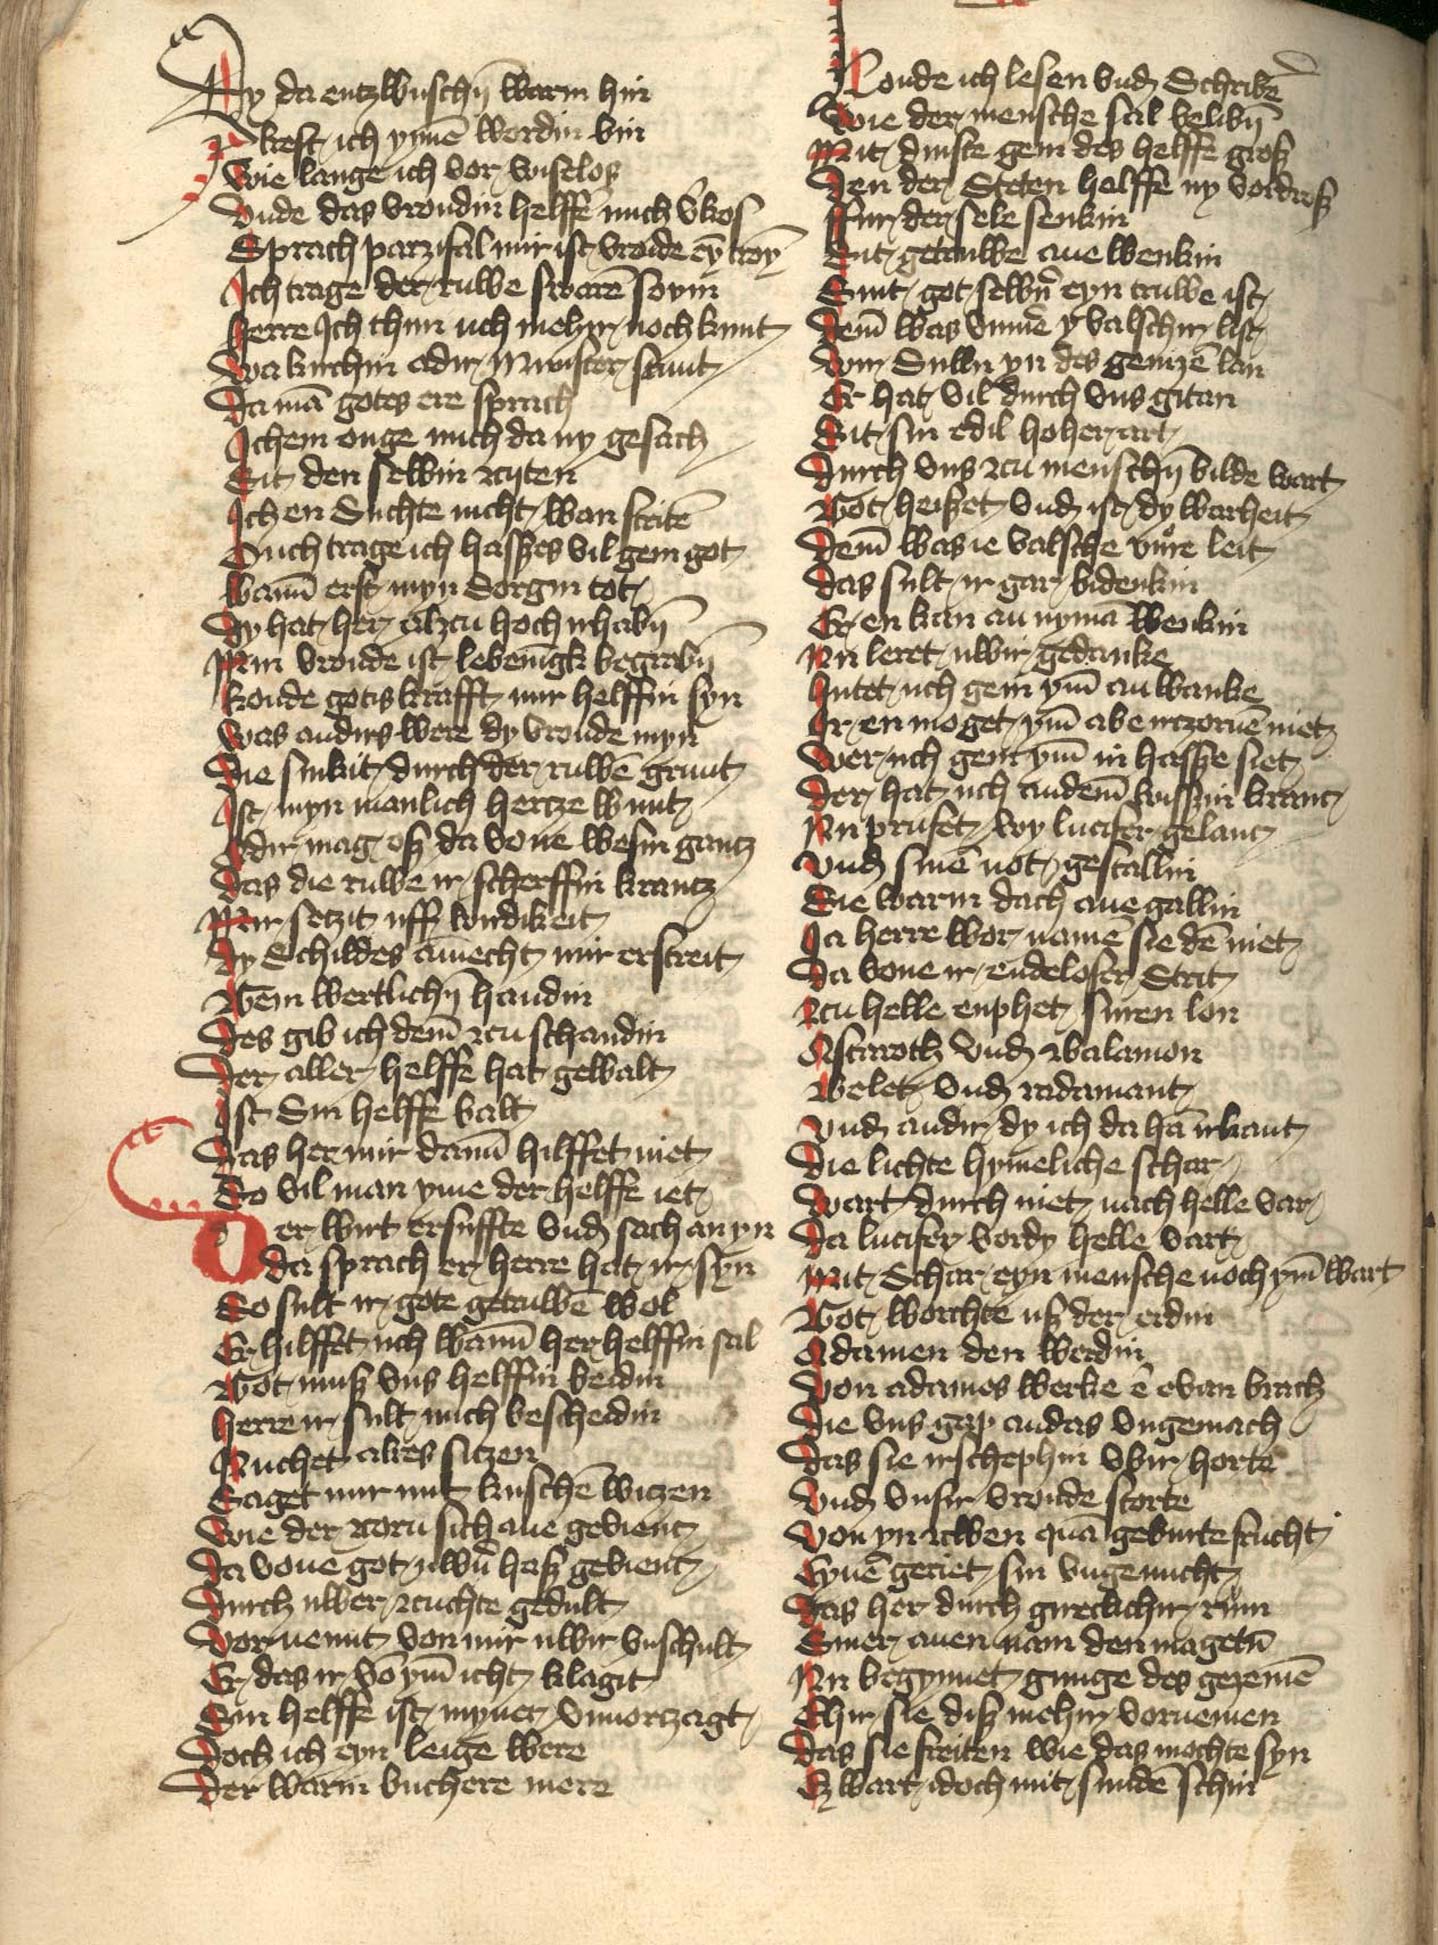 Ay da entzwuschn̄ warin hin
Alrest ich ynnē wordin bin
Wie lange ich vor wiselos
Vnde das vroudin helffē mich v̓kos
Sprach parzifal mir ist vroide eȳ troȳ
Ich trage der ruwe swarē soym
Herre Ich thun uch mehir noch kunt
Wa kirchin adir Munster stunt
Da mā gotes ere sprach
Ichein ouge mich da ny gesach
Sit den selbin zcijten
Ich en Suchte nicht wan stritē
Ouch trage ich hasszes vil gein got
Wann̄ erst myn Sorgin tot
Dy hat her alzcu hoch irhabn̄
Min vroude ist lebenigk begrabn̄
Konde gotis krafft mir helffin syn
Was andirs were dy vroude myn
Die sinkit durch der ruwē grunt
Ist myn manlich hertze wunt
Adir mag osz da vone wesin gantz
Das die ruwe ir scherffin krantz
Mir setzit uff wirdikeit
Dy Schildes ammecht mir erstreit
Gein wertlichn̄ handin
Des gib ich dem̄ zcu schandin
Der aller helffe hat gewalt
Ist Sin helffe balt
Das her mir dann̄ hilffet niet
So vil man yme der helffe iet
Der wirt ersuffte vnd sach an yn
Da sprach er herre hat ir syn
So sult ir gote getruwē wol
Er hilffet uch wann̄ her helffin sal
Got musz vns helffin beidin
Herre ir sult mich bescheidin
Ruchet alres sitzen
Saget mir mit kuschē witzen
Wie der zcorn sich ane gevienc
Da vone got uwn̄ hasz gevienc
Durch uwer zcuchte gedult
Vornemit von mir uwir vnschult
Er das ir vō ym̄ icht klagit
Sin helffe ist ymmer vnuorzagt
Doch ich eyn leige were
Der warin buchere mere
Konde ich lesen vnd Schribē
Wie der mensche sal belibn̄
Mit dinste gein des helffē grosz
Den der Steten helffe ny vordrosz
Ffur der sele senkin
Sit getruwe ane wenkin
Sint got selbir eyn truwe ist
Dem̄ was vnmē y valschir list
Wir Sulln yn des genizē lan
Er hat vil durch vns gitan
Sit sin edil hoher art
Durch vns zcu menschn̄ bilde wart
Got heiszet vnd ist dy warheit
Dem̄ was ie valsche vure leit
Das sult ir gar bidenkin
Er en kan an nymā wenkin
Nu leret uwir gedanke
Hutet uch gein ym̄ an wanke
Ir en moget ym̄ abe irzornē niet
Wer uch gein ym̄ in hassze siet
Der hat uch andem̄ wisszin kranc
Nu prufet wy lucifer gelanc
Vnd sinē not gestallin
Sie warin dach ane gallin
Ja herre wor namē sie dē niet
Da vone ir endeloser Strit
Zcu helle enphet suren lon
Astaroth vnd Balamon
Belet vnd radamant
Vnd andir dy ich da hā irkant
Die lichte hymeliche schar
Wart durch niet nach helle var
Da lucifer vor dy helle vart
Mit Schar eyn mensche noch ym̄ wart
Got worchte usz der erdin
Adamen den werdin
Von adames werke ē evan brach
Die vns gap an das vngemach
Das sie irschephin vbir horte
Vnd vnsir vroude storte
Von yn zcwen quā geburte frucht
Eynē geriet sin vngenucht
Das her durch gireclichir rum
Siner anen nam den magetū
Nu begynnet gnuge des gezemē
Ehir sie disz mehir vornemen
Das sie freiten wie das mochte syn
Ez wart idoch mit sundē schin